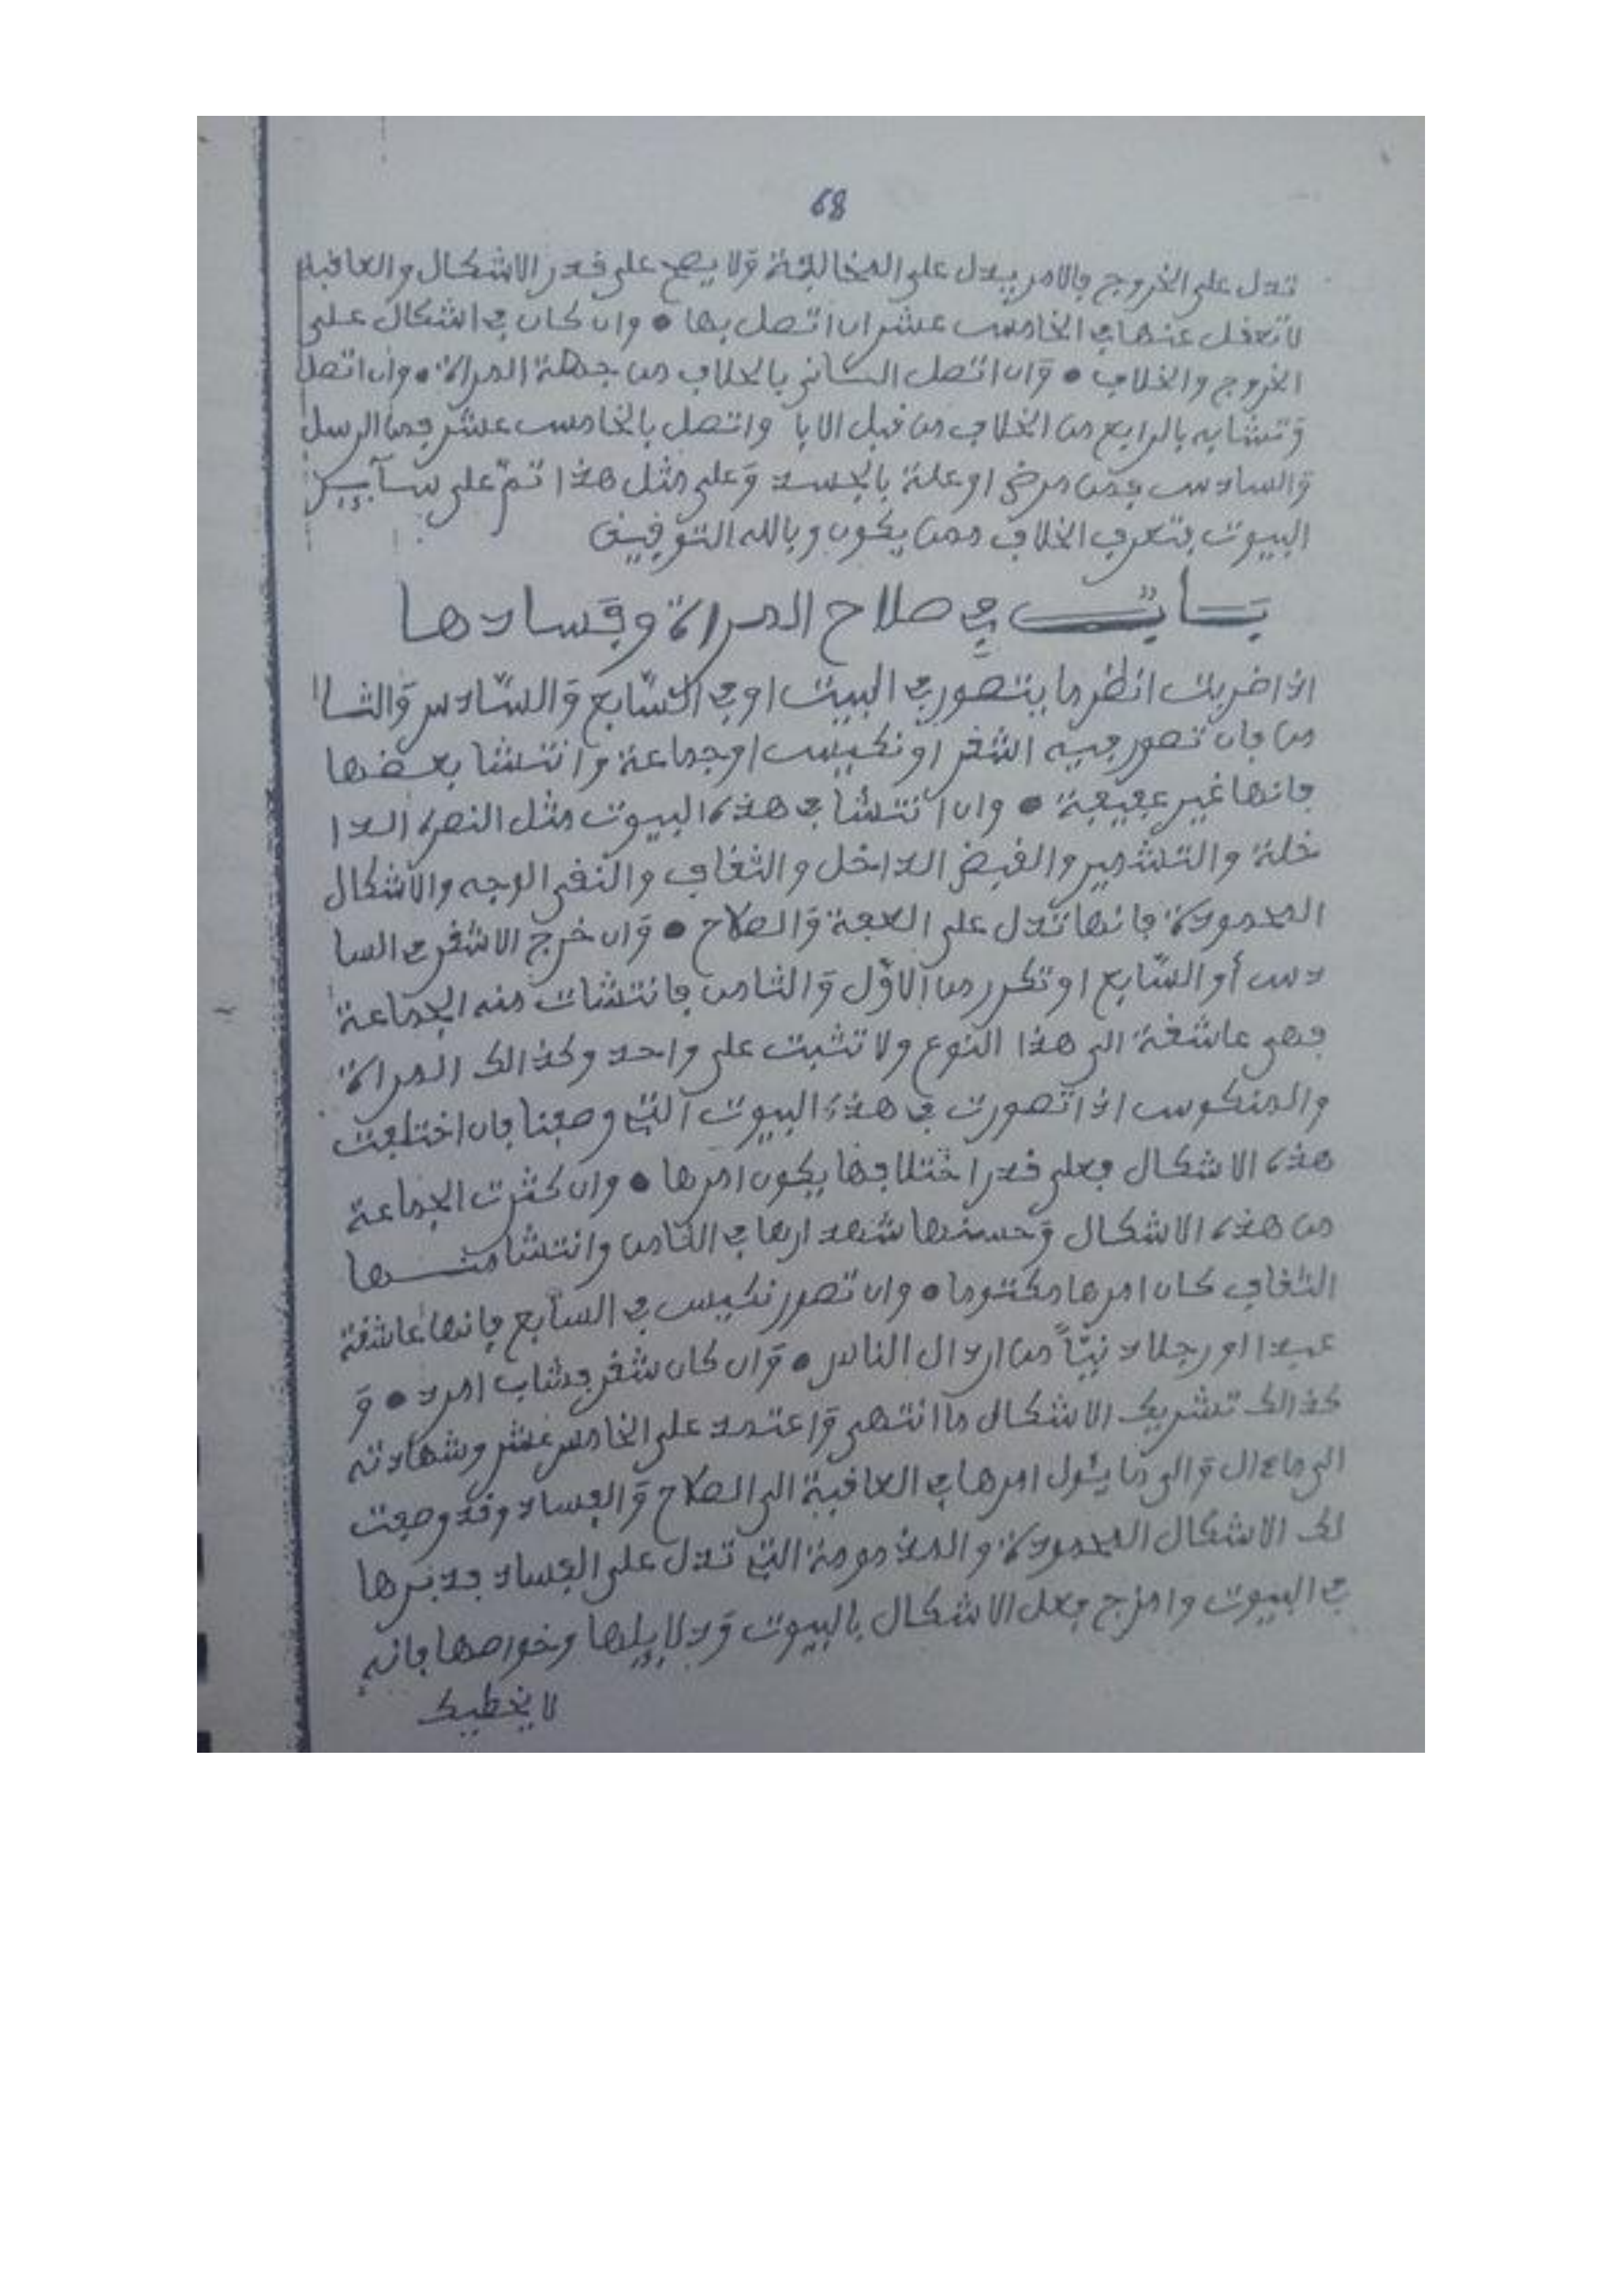 68
تدل على الخروج فالامر يدل على المخالفة وَلا يصح على قدر الاشكال والعاقبة
لا تغفل عنها في الخامس عشر ان اتصل بها • وان كان في اشكال على
الخروج والخلاف • وَان اتصل الثاني بالخلاف من جهة المراة • وان اتصل
وَتشابه بالرابع من الخلاف من قبل الابا واتصل بالخامس عشر فمن الرسل
وَالسادس فمن مرض او علة بالجسد وَعلى مثل هذا تمّ على سآيـر
البيوت بتعرف الخلاف ممن يكون وبالله التوفيق
بَــابٌ في صلاح المراة وفَسادها
اذا ضربت انظر ما يتصور في البيت او في السّابع وَالسّادس وَالثا
من فان تصور فيه الشقر او نكيس او جماعة وانتشا بعضها
فانها غير عفيفة • وان انتشا في هذه البيوت مثل النصرة الدا
خلة والتشمير والقبض الداخل والثقاف والنقي الوجه والاشكال
المحمودة فانها تدل على العفة وَالصلاح • وَان خرج الاشقر في السا
دس أو السّابع او تكرر من الاوّل وَالثامن فانتشات منه الجماعة
فهي عاشقة الى هذا النوع ولا تثبت على واحد وكذالك المراة
والمنكوس اذا تصورت في هذه البيوت التي وصفنا فان اختلفت
هذه الاشكال فعلى قدر اختلافها يكون امرها • وان كثرت الجماعة
من هذه الاشكال وَحسنها في الثامن وانتشا منـــها
الثقاف كان امرها مكتوما • وان تصور نكيس في السابع فانها عاشقة
عبدا او رجلا دنيّاً من اردال الناس • وَان كان شقر فشاب امرد • وَ
كذالك تشريك الاشكال ما انتهى وَاعتمد على الخامس عشر وشهادته
الى ما ءال وَالى ما يئول امرها في العاقبة الى الصلاح وَالفساد وقد وصفت
لك الاشكال المحمودة والمذمومة التي تدل على الفساد فدبرها
في البيوت وامزج فعل الاشكال بالبيوت وَدلايلها وخواصها فانه
لا يخطيك